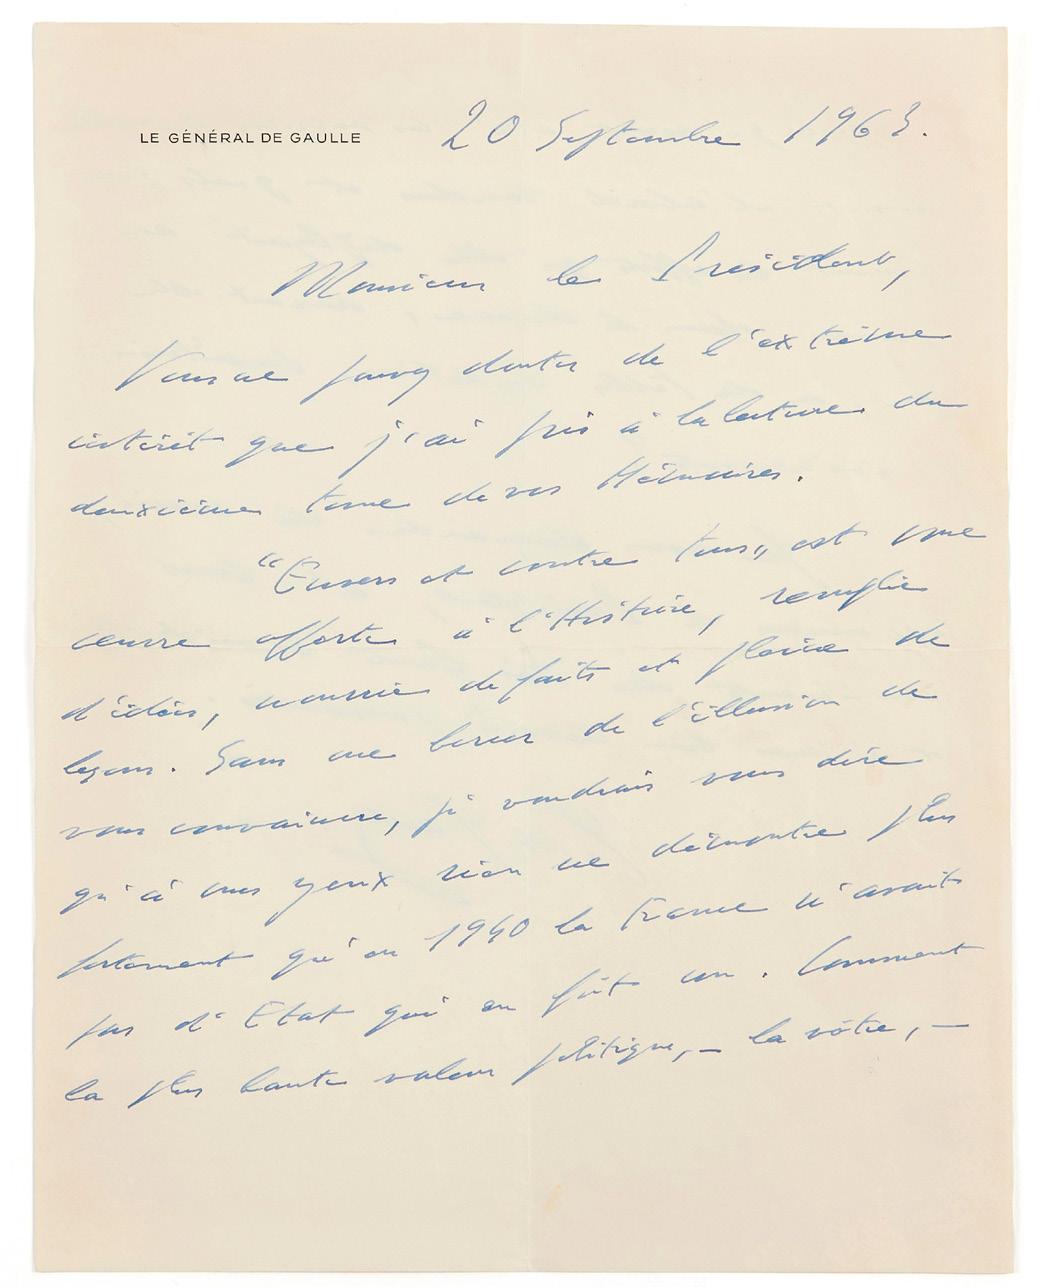 LE GÉNÉRAL DE GAULLE
20 Septembre 1963.
Monsieur le Président,
Vous ne pouvez douter de l'extrême
intérêt que j'ai pris à la lecture du
deuxième tome de vos Mémoires.
"Envers et contre tous" est une
œuvre offerte à l'Histoire, remplie
d'idées, nourrie de faits et pleine de
leçons. Sans me bercer de l'illusion de
vous convaincre, je voudrais vous dire
qu'à mes yeux rien ne démontre plus
fortement qu'en 1940 la France n'avait
pas d'Etat qui en fût un. Comment
la plus haute valeur politique, – la vôtre, –